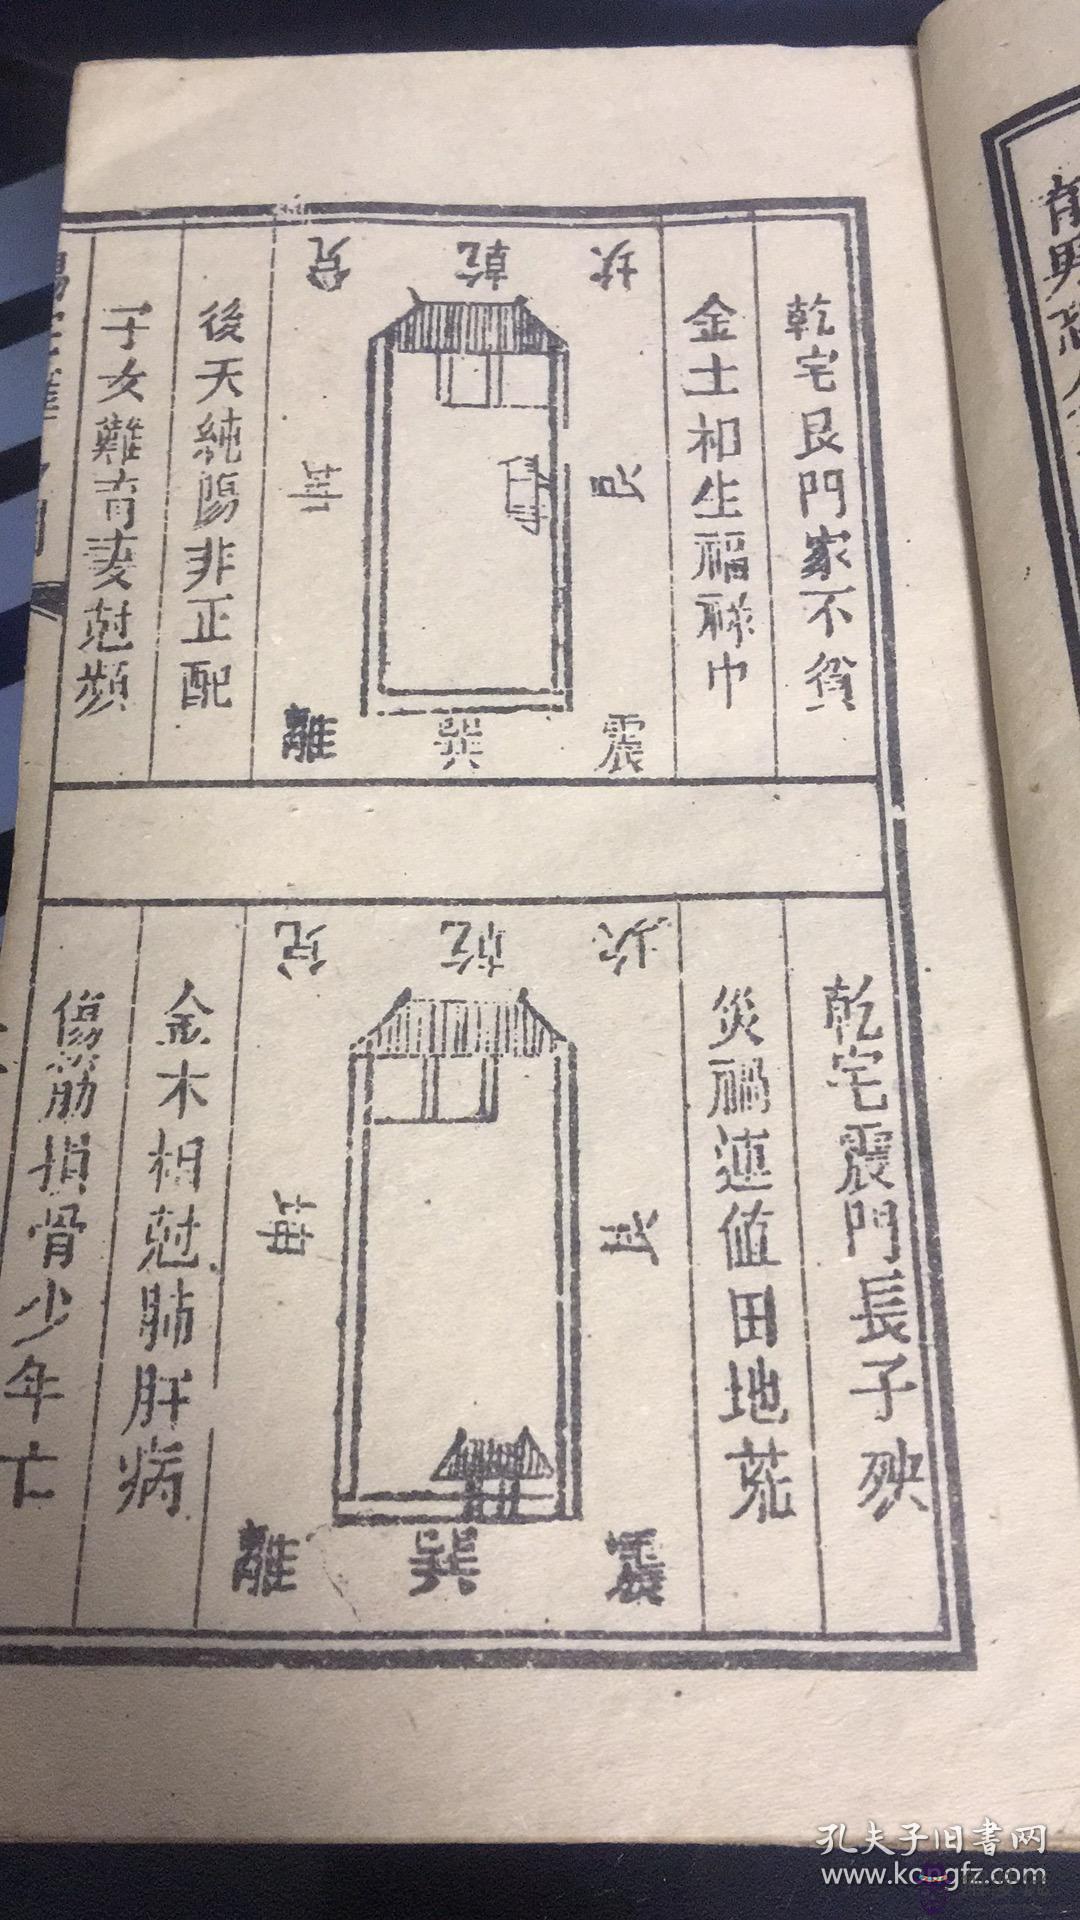 乾宅艮門家不貧
金土相生福祿巾
坎
乾
兌
艮
坤
震
巽
離
後天純陽非正配
子女難育妻尅頻
乾宅震門長子殃
災禍連值田地荒
坎
乾
兌
艮
坤
震
巽
離
金木相尅肺肝病
傷筋損骨少年亡
孔夫子旧書网
www.kongfz.com